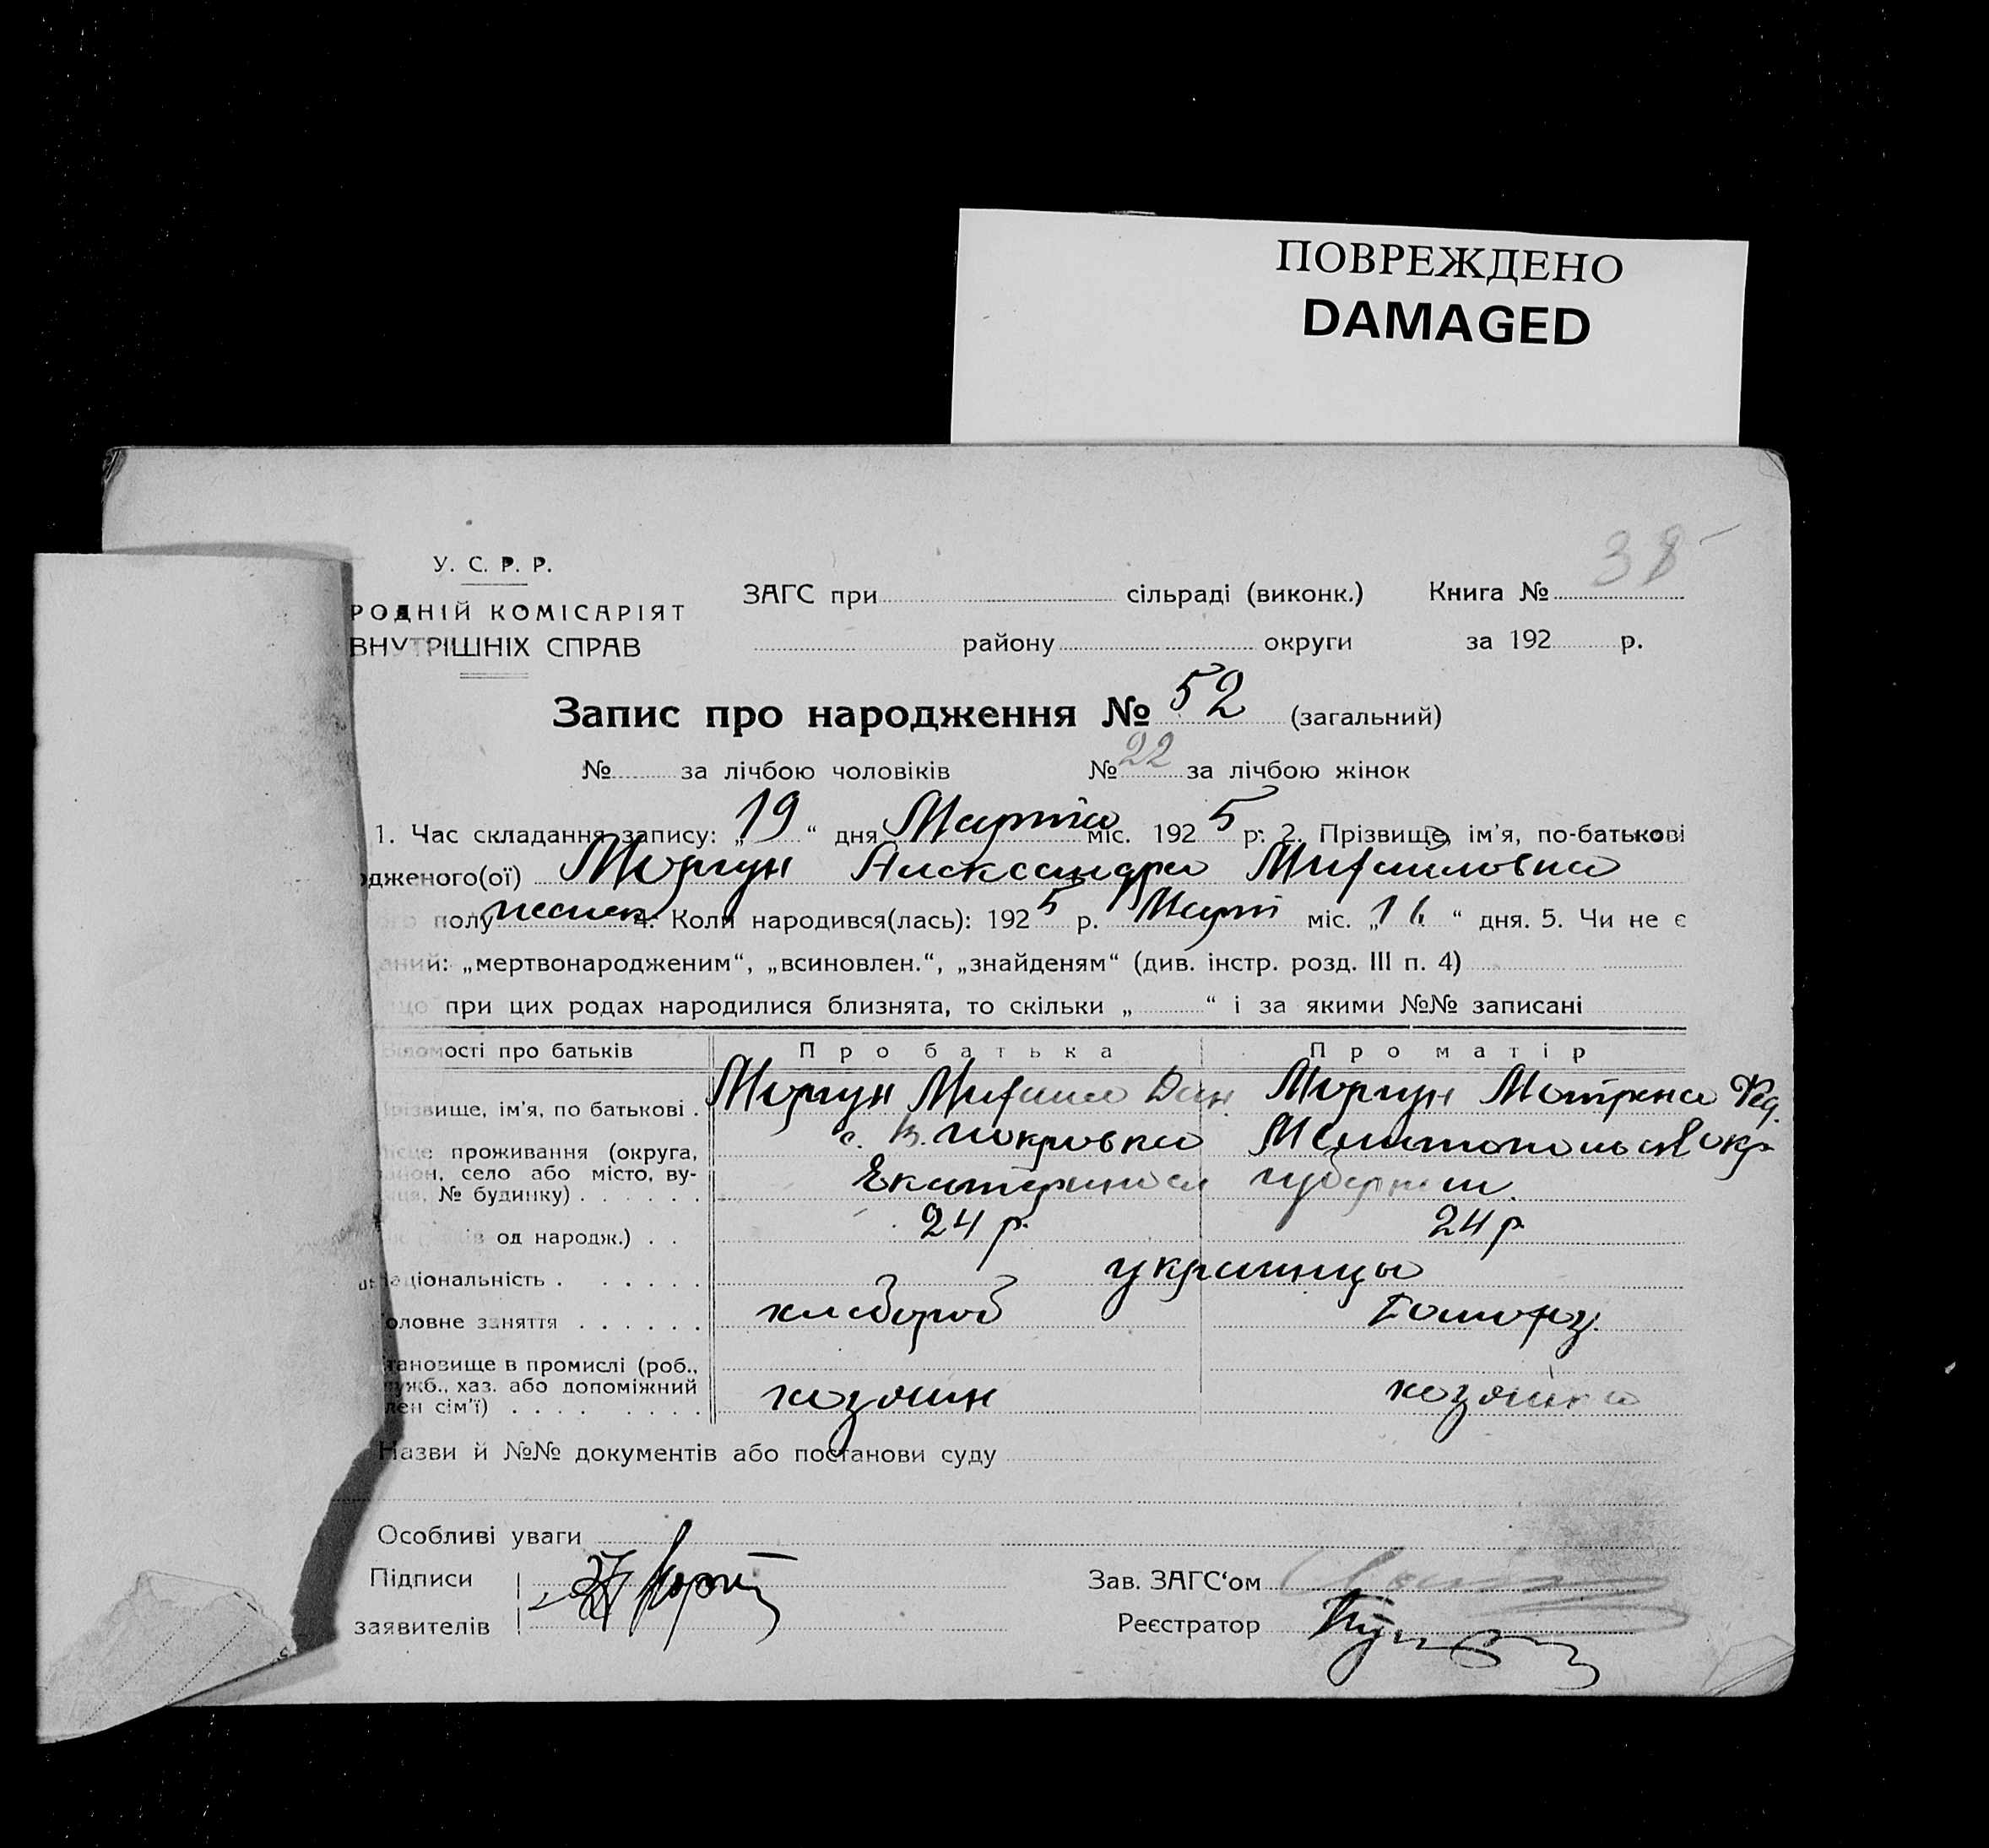 ПОВРЕЖДЕНО
DAMAGED
38
У. С. Р. Р.
РОДНІЙ КОМІСАРІЯТ
ВНУТРІШНІХ СПРАВ
ЗАГС при сільраді (виконк.) Книга №
району округи за 192 р.
Запис про народження № 52 (загальний)
№ за лічбою чоловіків № 22 за лічбою жінок
1. Час складання запису: „19“ дня Марта міс. 1925 р. 2. Прізвище, ім'я, по-батькові
одженого(ої) Моргун Александра Михаиловна
ого полу женск 4. Коли народився(лась): 1925 р. Март міс. „16“ дня. 5. Чи не є
аний: „мертвонародженим“, „всиновлен.“, „знайденям“ (див. інстр. розд. III п. 4)
що при цих родах народилися близнята, то скільки „ “ і за якими №№ записані
Відомості про батьків Про батька Про матір
Прізвище, ім'я, по батькові . Моргун Михаил Дан. Моргун Мотрена Фед.
місце проживання (округа, с. В. Покровка Мелитопольск окр
район, село або місто, ву-
лиця, № будинку) . . . . . . Екатериносл губернии.
од народж.) . . 24 р. 24 р
Національність . . . . . . украинцы
Головне заняття . . . . . . хлебороб Домохоз.
тановище в промислі (роб.,
служб., хаз. або допоміжний хозяин хозяйка
член сім'ї) . . . . . . . .
Назви й №№ документів або постанови суду
Особливі уваги
Підписи
заявителів
Зав. ЗАГС'ом
Реєстратор